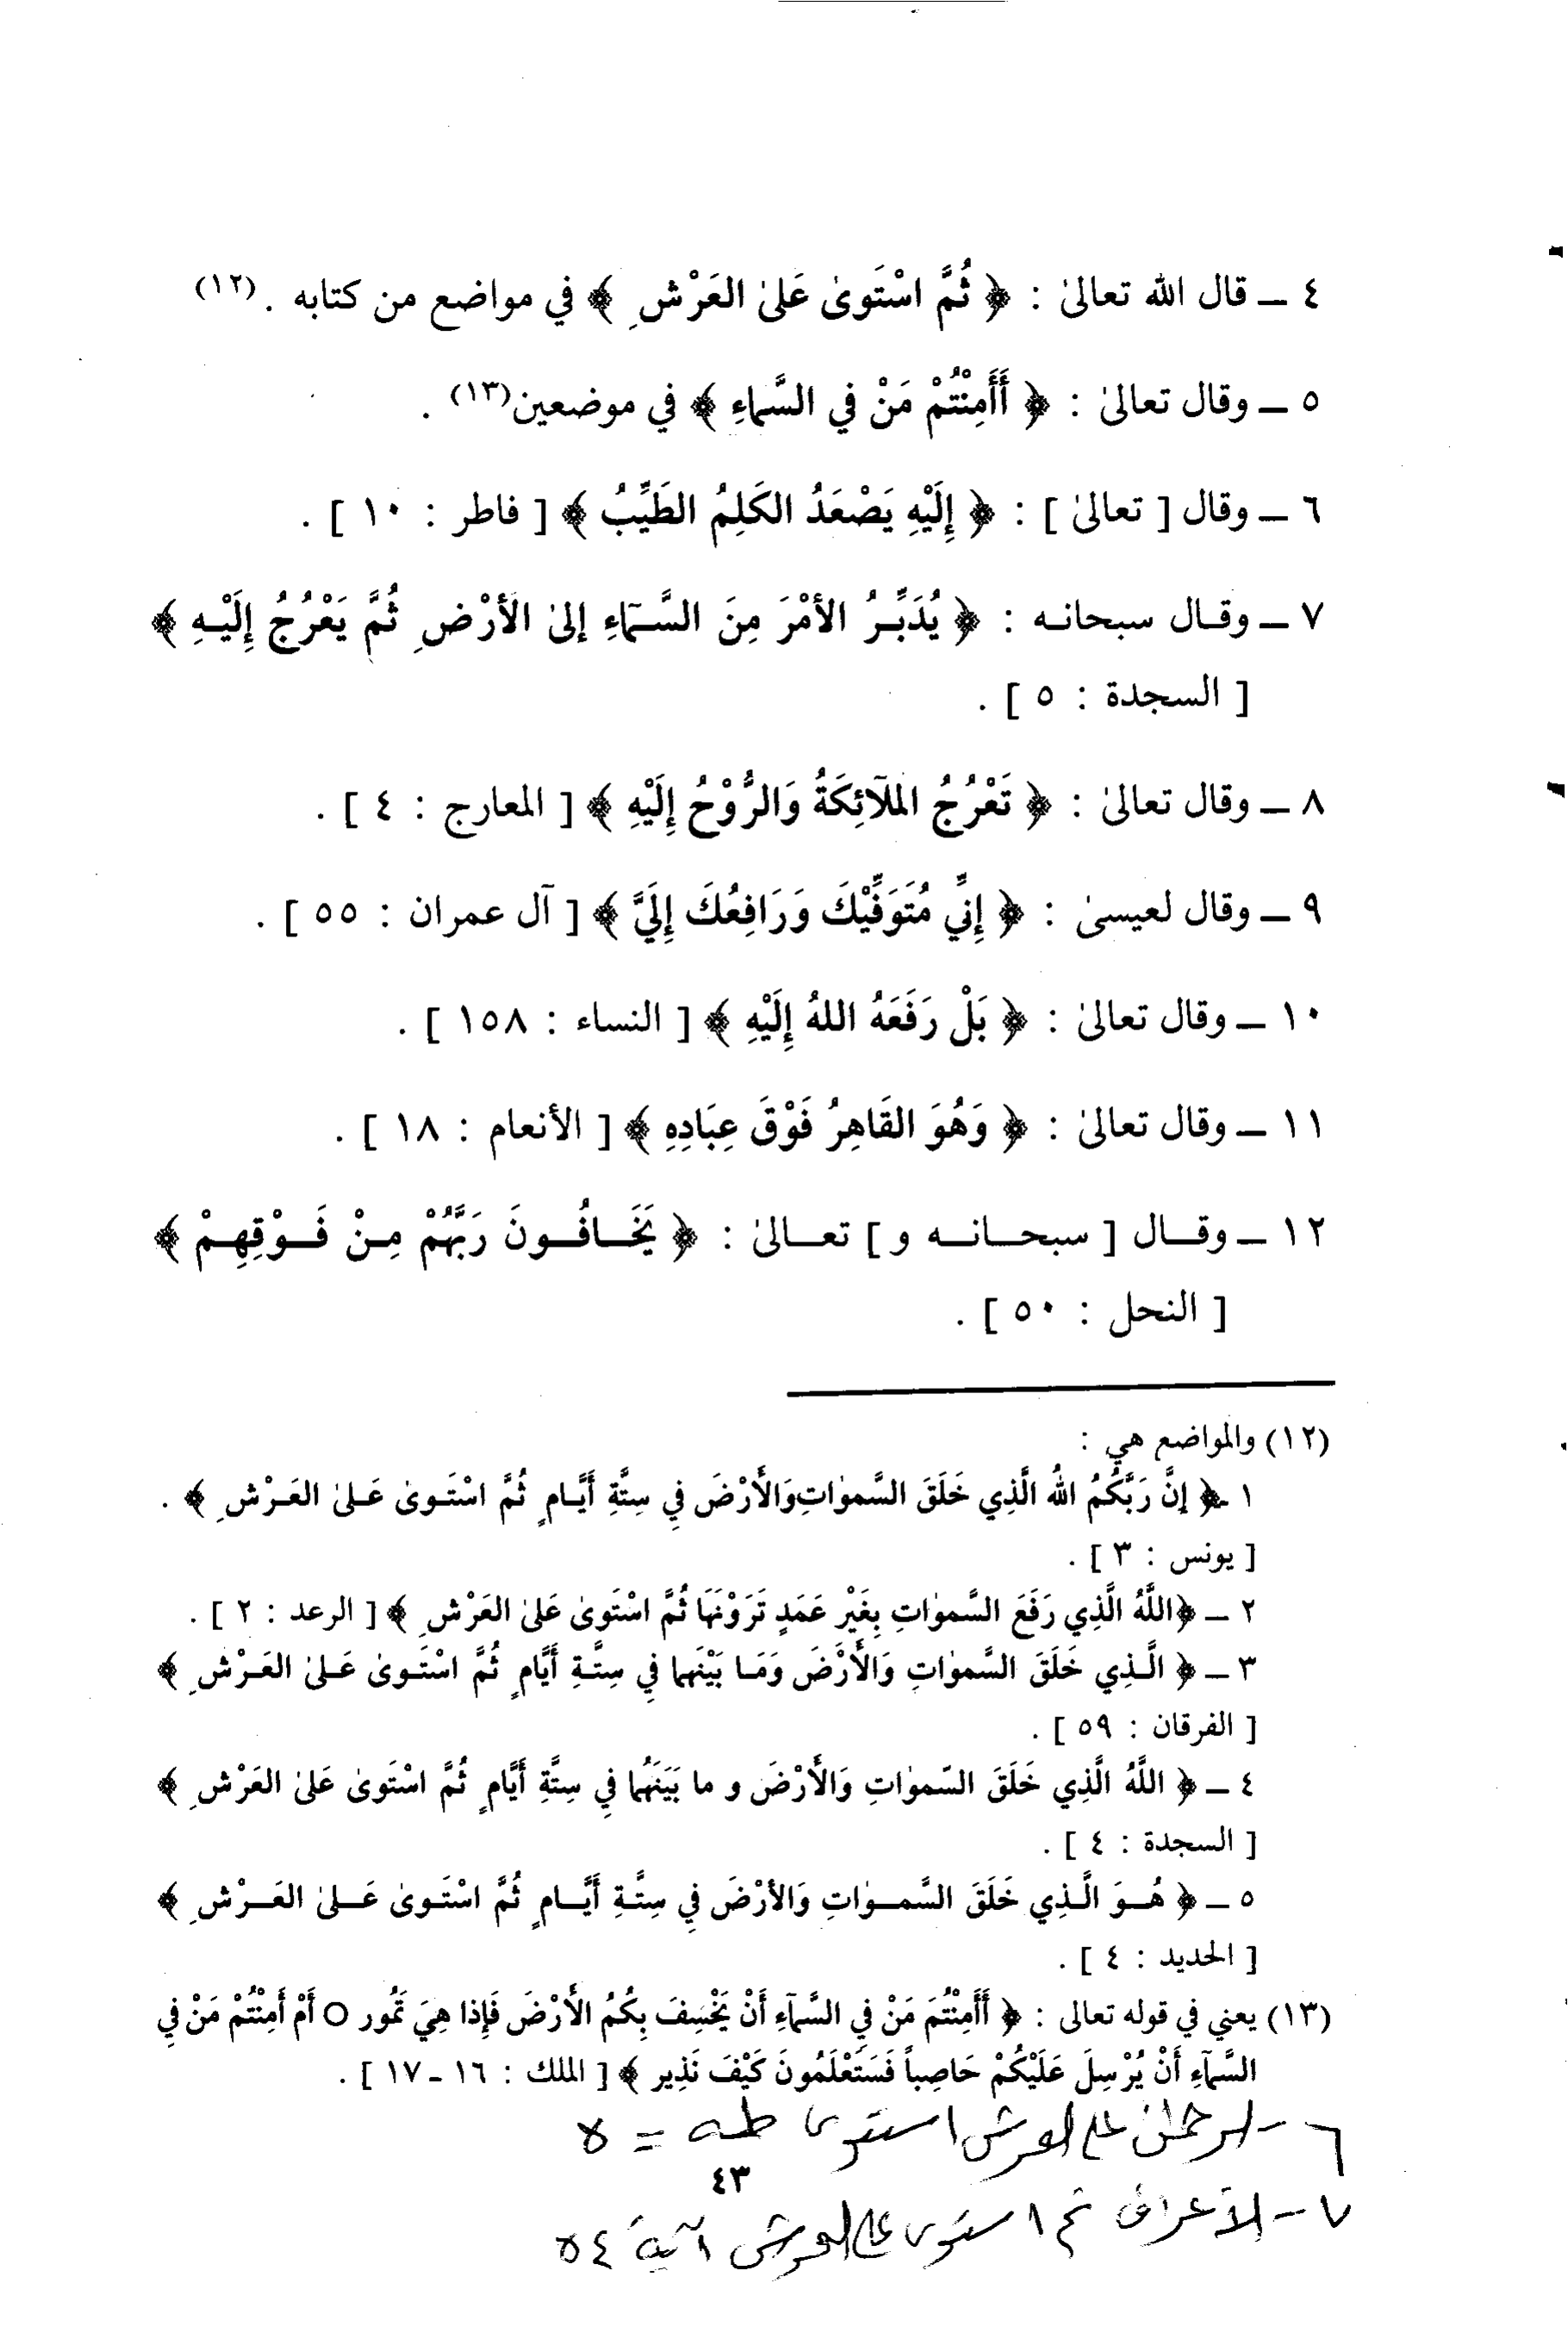 ٤ ـ قال الله تعالىٰ : ﴿ ثُمَّ اسْتَوىٰ عَلىٰ العَرْشِ ﴾ في مواضع من كتابه . (١٢)
٥ ـ وقال تعالىٰ : ﴿ أَأَمِنْتُمْ مَنْ في السَّماءِ ﴾ في موضعين(١٣) .
٦ ـ وقال [ تعالىٰ ] : ﴿ إِلَيْهِ يَصْعَدُ الكَلِمُ الطَيِّبُ ﴾ [ فاطر : ١٠ ] .
٧ ـ وقـال سبحانـه : ﴿ يُدَبِّـرُ الأمْرَ مِنَ السَّـمَآءِ إلىٰ الأرْضِ ثُمَّ يَعْرُجُ إِلَيْـهِ ﴾
[ السجدة : ٥ ] .
٨ ـ وقال تعالىٰ : ﴿ تَعْرُجُ الملَآئِكَةُ وَالرُّوْحُ إِلَيْهِ ﴾ [ المعارج : ٤ ] .
٩ ـ وقال لعيسىٰ : ﴿ إِنِّي مُتَوَفِّيْكَ وَرَافِعُكَ إِلَيَّ ﴾ [ آل عمران : ٥٥ ] .
١٠ ـ وقال تعالىٰ : ﴿ بَلْ رَفَعَهُ اللهُ إِلَيْهِ ﴾ [ النساء : ١٥٨ ] .
١١ ـ وقال تعالىٰ : ﴿ وَهُوَ القَاهِرُ فَوْقَ عِبَادِهِ ﴾ [ الأنعام : ١٨ ] .
١٢ ـ وقـــال [ سبحـــانـــه و ] تعـــالىٰ : ﴿ يَخَـــافُـــونَ رَبَّهُمْ مِـنْ فَـــوْقِهِـمْ ﴾
[ النحل : ٥٠ ] .
(١٢) والمواضع هي :
١ ـ ﴿ إِنَّ رَبَّكُمُ اللهُ الَّذِي خَلَقَ السَّمٰواتِ وَالأَرْضَ فِي سِتَّةِ أَيَّـامٍ ثُمَّ اسْتَـوىٰ عَـلىٰ العَـرْشِ ﴾ .
[ يونس : ٣ ] .
٢ ـ ﴿اللَّهُ الَّذِي رَفَعَ السَّمٰواتِ بِغَيْرِ عَمَدٍ تَرَوْنَهَا ثُمَّ اسْتَوىٰ عَلىٰ العَرْشِ ﴾ [ الرعد : ٢ ] .
٣ ـ ﴿ الَّـذِي خَلَقَ السَّمٰواتِ وَالأَرْضَ وَمَـا بَيْنَهُما فِي سِتَّـةِ أَيَّامٍ ثُمَّ اسْتَـوىٰ عَـلىٰ العَـرْشِ ﴾
[ الفرقان : ٥٩ ] .
٤ ـ ﴿ اللَّهُ الَّذِي خَلَقَ السّمٰواتِ وَالأَرْضَ و ما بَيَنَهُما فِي سِتَّةِ أَيَّامٍ ثُمَّ اسْتَوىٰ عَلىٰ العَرْشِ ﴾
[ السجدة : ٤ ] .
٥ ـ ﴿ هُـــوَ الَّـذِي خَلَقَ السَّمـــٰواتِ وَالأرْضَ فِي سِتَّـةِ أَيَّـــامٍ ثُمَّ اسْتَـوىٰ عَـــلىٰ العَـــرْشِ ﴾
[ الحديد : ٤ ] .
(١٣) يعني في قوله تعالى : ﴿ أَأَمِنْتُمَ مَنْ فِي السَّمَآءِ أَنْ يَخْسِفَ بِكُمُ الأَرْضَ فَإِذا هِيَ تَمُور ○ أَمْ أَمِنْتُمْ مَنْ فِي
السَّمَآءِ أَنْ يُرْسِلَ عَلَيْكُمْ حَاصِباً فَسَتَعْلَمُونَ كَيْفَ نَذِير ﴾ [ الملك : ١٦ ـ ١٧ ] .
٦ - الرحمان على العرش استوى طه = ٥
٤٣
٧ - الأعراف ثم استوى على العرش آية ٥٤